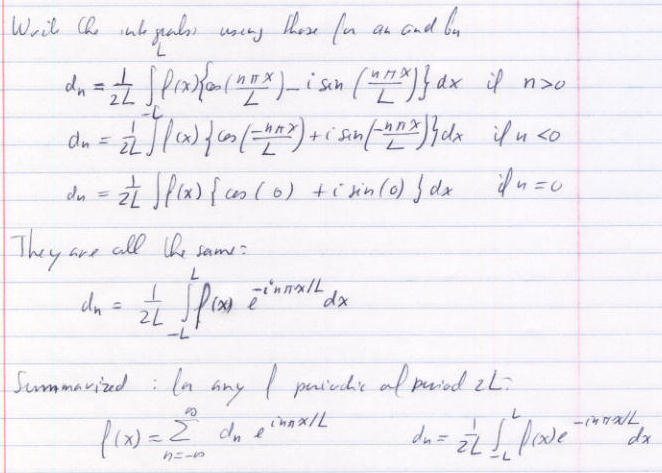 Write the integrals using those for an and bn
dn = 1/2L ∫_{-L}^{L} f(x) {cos(nπx/L) - i sin(nπx/L)} dx if n>0
dn = 1/2L ∫ f(x) {cos(-nπx/L) + i sin(-nπx/L)} dx if n<0
dn = 1/2L ∫ f(x) {cos(0) + i sin(0)} dx if n=0
They are all the same:
dn = 1/2L ∫_{-L}^{L} f(x) e^{-inπx/L} dx
Summarized : for any f periodic of period 2L:
f(x) = Σ_{n=-∞}^{∞} dn e^{inπx/L} dn = 1/2L ∫_{-L}^{L} f(x) e^{-inπx/L} dx